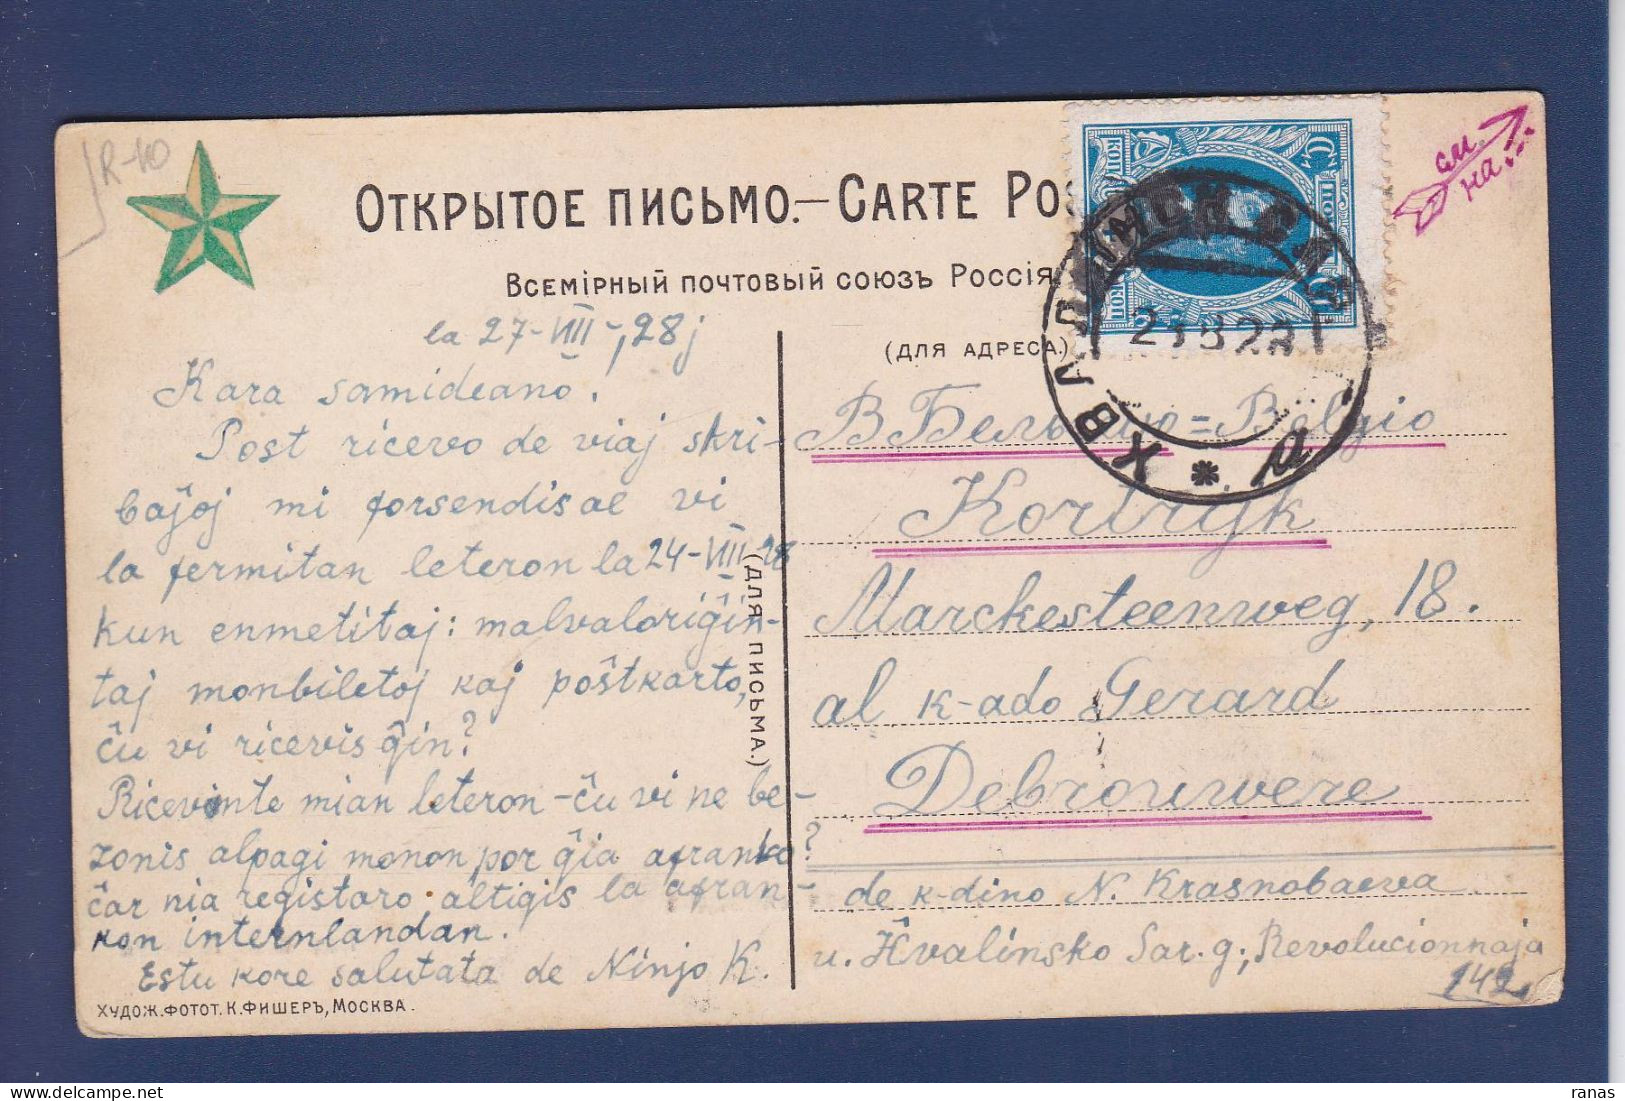 R-40
Открытое письмо.—Carte Pos
Всемірный почтовый союзъ Россія
(для адреса.)
(для письма.)
см.
на
la 27-VIII-,28j
Kara samideano.
Post ricevo de viaj skri-
baĵoj mi forsendis al vi
la fermitan leteron la 24-VIII-28
kun enmetitaj: malvaloriĝin-
taj monbiletoj kaj poŝtkarto,
ĉu vi ricevis ĝin?
Ricevinte mian leteron-ĉu vi ne be-
zonis alpagi monon por ĝia afranko?
ĉar nia registaro altigis la afran-
kon internlandan.
Estu kore salutata de Ninjo K.
Худож.фотот.К.Фишеръ,Москва.
В Бельгию=Belgio
Kortryk
Marckesteenweg, 18.
al k-ado Gerard
Debrouwere
de k-dino N. Krasnobaeva
u. Ĥvalinsko Sar.g; Revolucionnaja
142
ranas